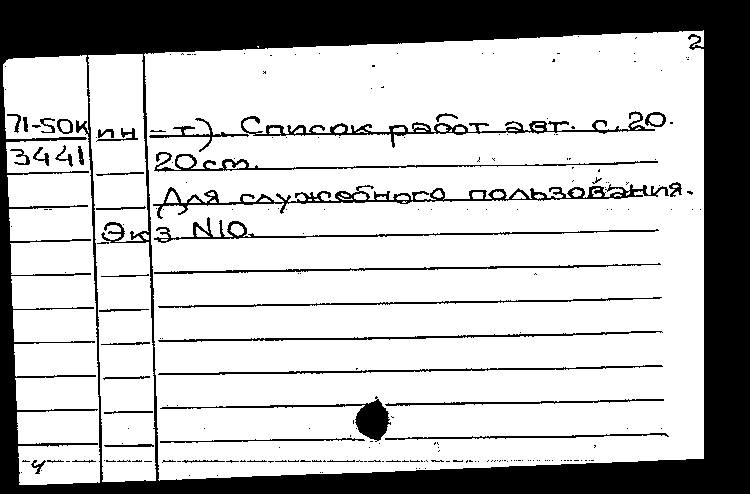 2
71-50к ин-т). Список работ авт. с. 20.
3441 20 см.
Для служебного пользования.
Экз N10.
ч